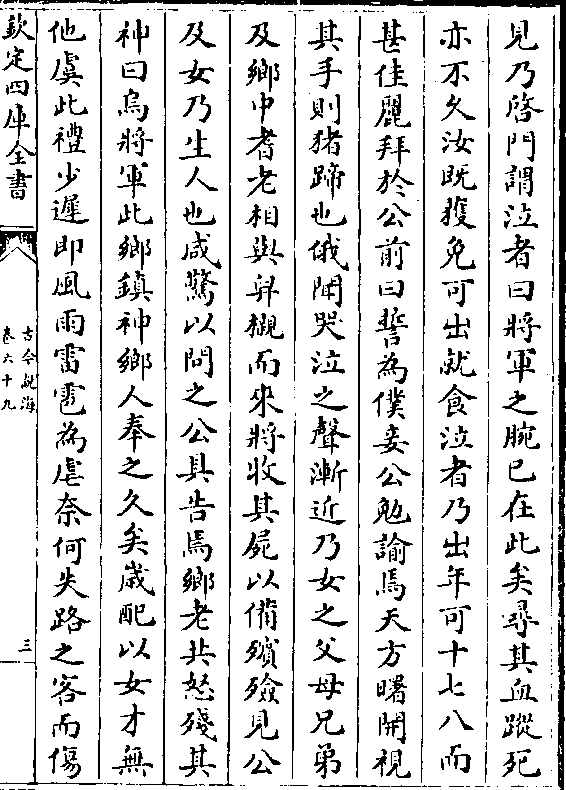 見乃啓門謂泣者曰將軍之腕已在此矣尋其血蹤死
亦不久汝既獲免可出就食泣者乃出年可十七八而
甚佳麗拜於公前曰誓為僕妾公勉諭焉天方曙開視
其手則猪蹄也俄聞哭泣之聲漸近乃女之父母兄弟
及鄉中耆老相與舁櫬而來將收其屍以備殯殮見公
及女乃生人也咸驚以問之公具告焉鄉老共怒殘其
神曰烏將軍此鄉鎮神鄉人奉之久矣歲配以女才無
他虞此禮少遲即風雨雷雹為虐奈何失路之客而傷
欽定四庫全書
古今說海
卷六十九
三